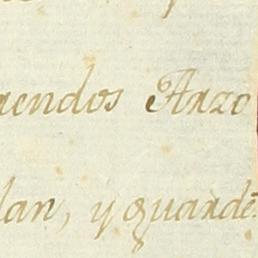 rendos Arzo
dan, y guarde